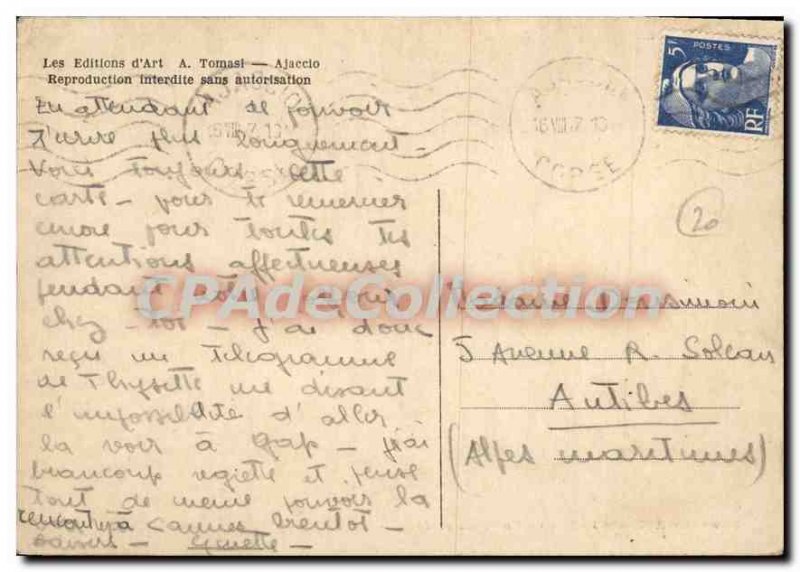 Les Editions d'Art A. Tomasi — Ajaccio
Reproduction interdite sans autorisation
En attendant de pouvoir
t'ecrire plus longuement -
Voici toujours cette
carte - pour te remercier
encore pour toutes tes
attentions affectueuses
pendant notre séjour
chez - toi - J'ai donc
reçu un telegramme
de Thysette me disant
l'impossibilité d'aller
la voir à Gap - j'ai
beaucoup regretté et pense
tout de même pouvoir la
rencontrer à Cannes bientôt -
baisers - Ginette -
5F
POSTES
RF
CORSE
20
5 Avenue R. Soleau
Antibes
(Alpes maritimes)
CPAdeCollection